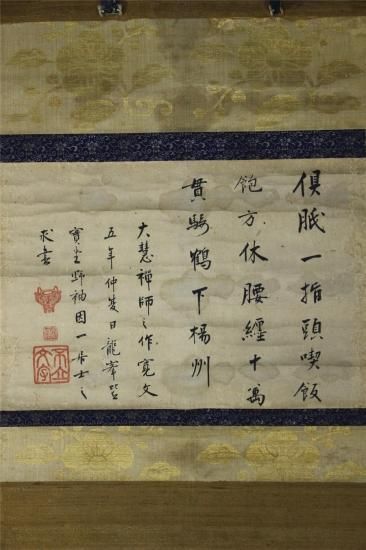 俱胝一指頭喫飯
飽方休腰纏十萬
貫騎鶴下楊州
大慧禅師之作寛文
五年仲夏日龍峯
野衲因一居士之
求書
不立文字